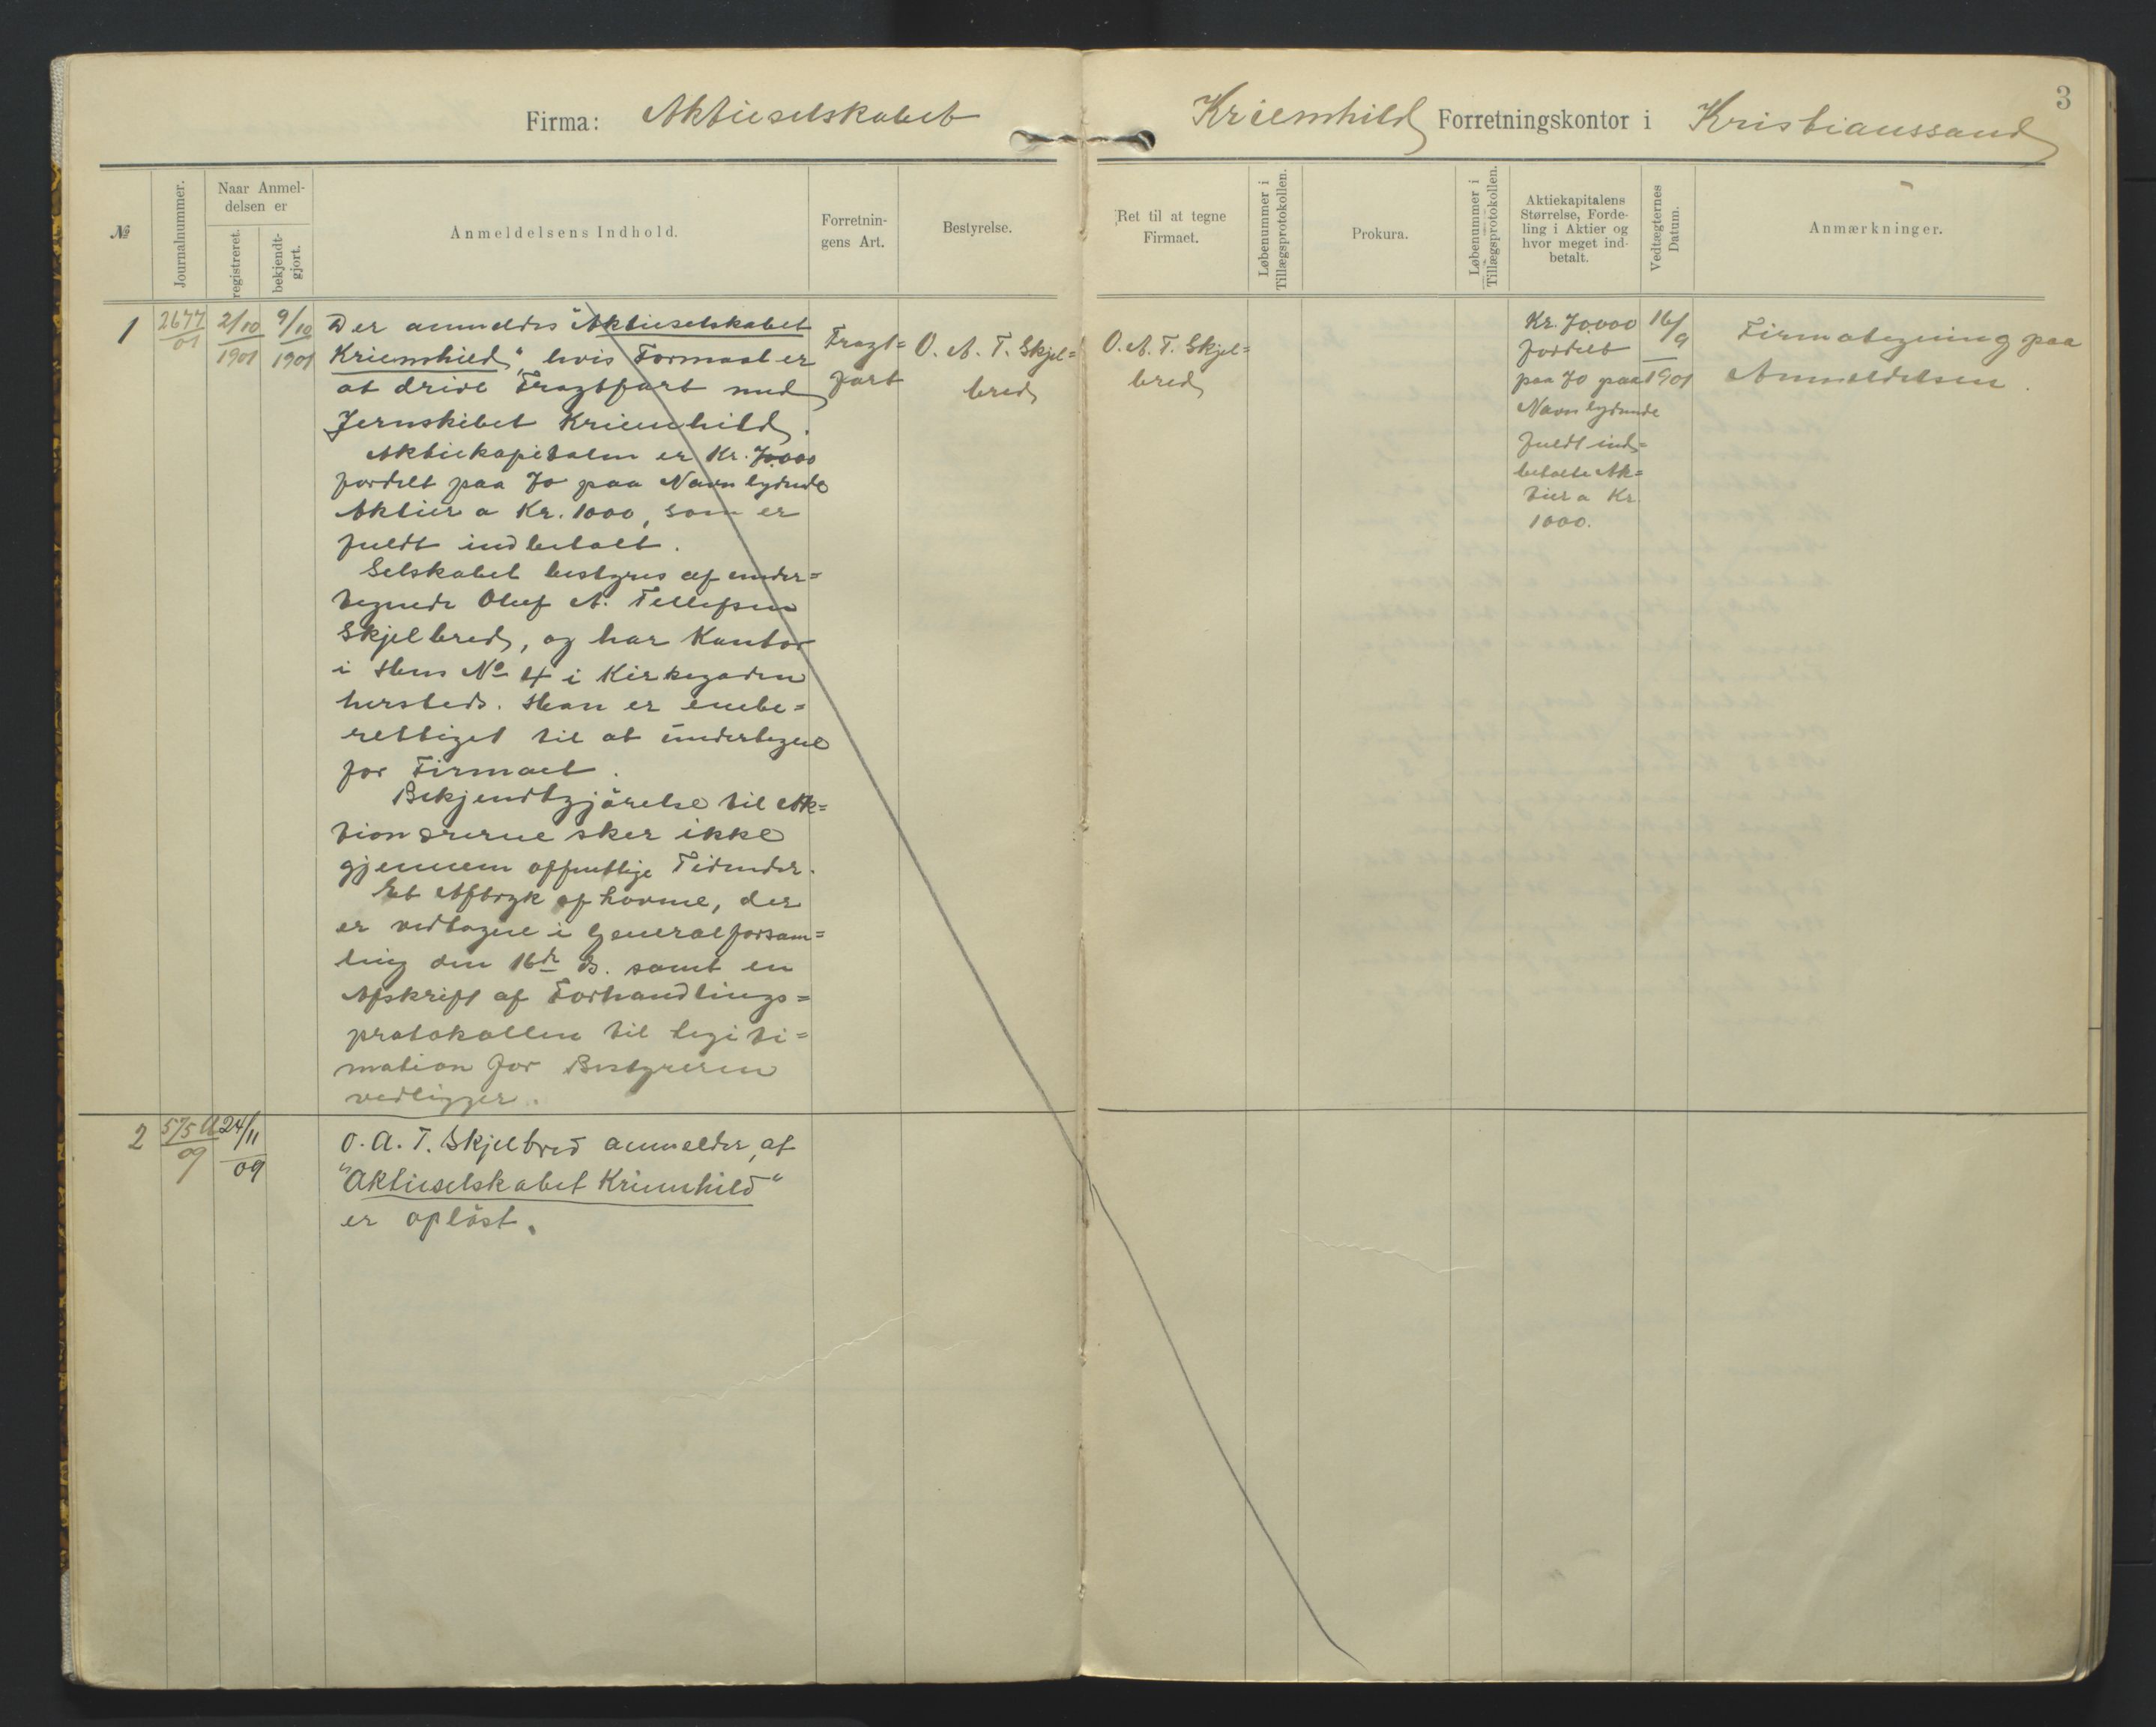 3
Firma: Aktieselskabet Kriemhild Forretningskontor i Kristianssand
№
Journalnummer.
Naar Anmel-
delsen er
registreret.
bekjendt-
gjort.
Anmeldelsens Indhold.
Forretnin-
gens Art.
Bestyrelse.
Ret til at tegne
Firmaet.
Løbenummer i
Tillægsprotokollen.
Prokura.
Løbenummer i
Tillægsprotokollen.
Aktiekapitalens
Størrelse, Forde-
ling i Aktier og
hvor meget ind-
betalt.
Vedtægternes
Datum.
Anmærkninger.
1
2677/01
2/10 1901
9/10 1901
Der anmeldes "Aktieselskabet
Kriemhild", hvis Formaal er
at drive Fragtfart med
Jernskibet Kriemhild.
Aktiekapitalen er Kr. 70000
fordelt paa 70 paa Navn lydende
Aktier a Kr. 1000, som er
fuldt indbetalt.
Selskabet bestyres af under=
tegnede Oluf A. Tellefsen
Skjelbred, og har Kontor
i Hus No 4 i Kirkegaden
hersteds. Han er enebe=
rettiget til at undertegne
for Firmaet.
Bekjendtgjörelse til Ak=
tionærerne sker ikke
gjennem offentlige Tidender.
Et Aftryk af Lovene, der
er vedtagne i Generalforsam=
ling den 16de ds. samt en
Afskrift af Forhandlings=
protokollen til Legiti=
mation for Bestyreren
vedligger.
Fragt=
fart
O. A. T. Skjel=
bred
O. A. T. Skjel=
bred
Kr. 70000
fordelt
paa 70 paa
Navn lydende
fuldt ind=
betalte Ak=
tier a Kr.
1000.
16/9
1901
Firmategning paa
Anmeldelsen.
2
575 a/09
24/11
09
O. A. T. Skjelbred anmelder, at
"Aktieselskabet Kriemhild"
er oplöst.